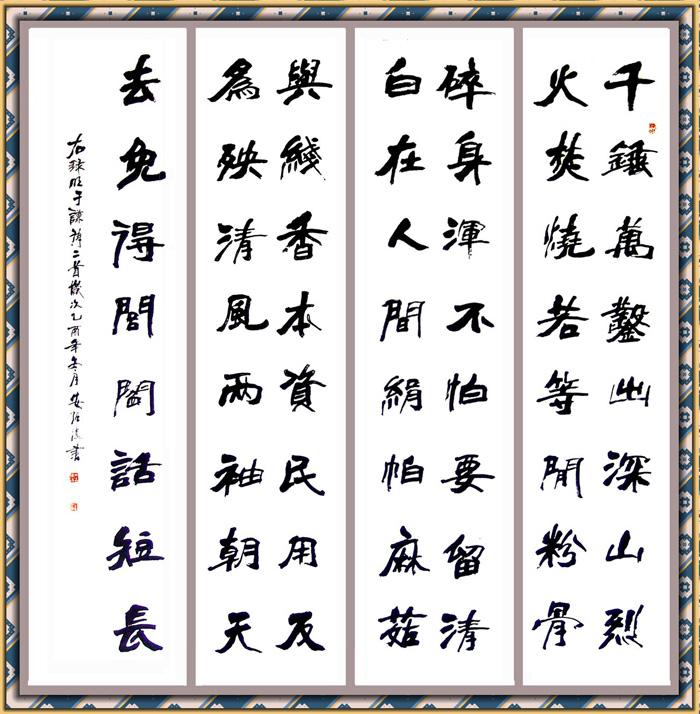 千錘萬鑿出深山烈
火焚燒若等閒粉骨
碎身渾不怕要留清
白在人間絹帕麻菇
與綫香本資民用反
為殃清風兩袖朝天
去免得閭閻話短長
右録明于謙詩二首歲次乙酉年冬月書